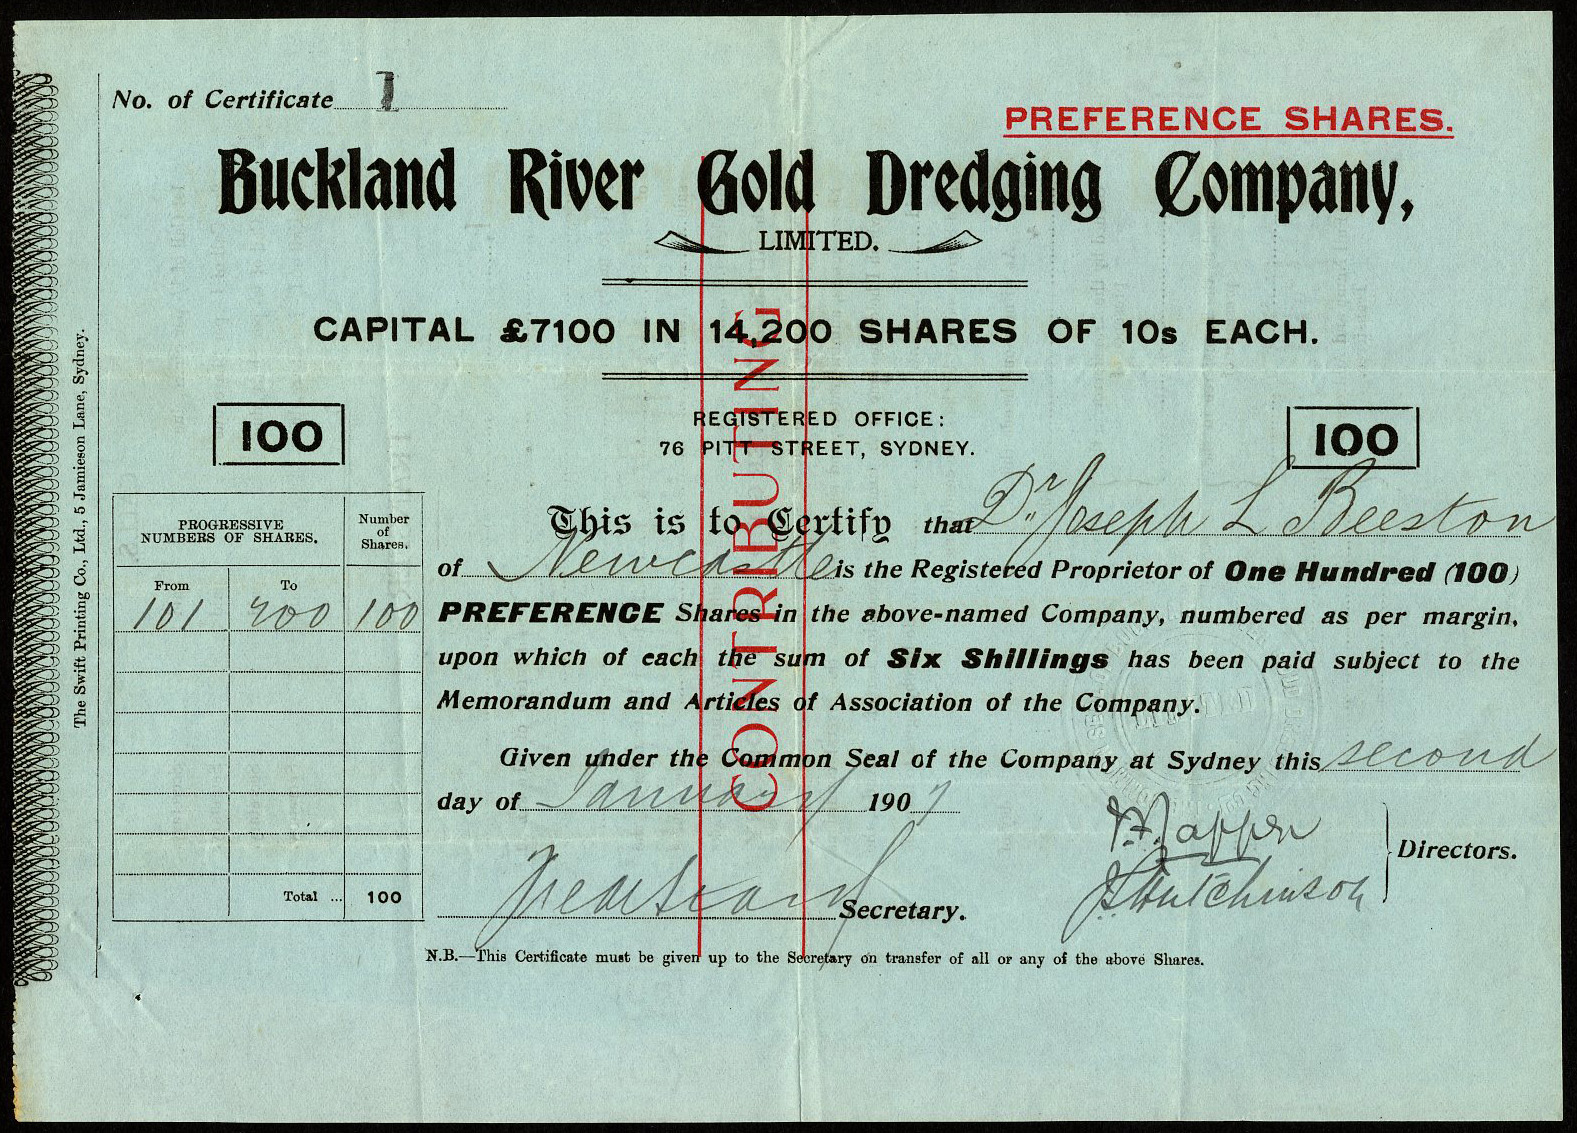 No. of Certificate 1
PREFERENCE SHARES.
Buckland River Gold Dredging Company,
LIMITED.
CAPITAL £7100 IN 14,200 SHARES OF 10s EACH.
100
REGISTERED OFFICE:
76 PITT STREET, SYDNEY.
100
CONTRIBUTING
The Swift Printing Co., Ltd., 5 Jamieson Lane, Sydney.
PROGRESSIVE NUMBERS OF SHARES.
Number of Shares.
From To
101 200 100
Total ... 100
This is to Certify that Dr. Joseph L Beeston
of Newcastle is the Registered Proprietor of One Hundred (100)
PREFERENCE Shares in the above-named Company, numbered as per margin,
upon which of each the sum of Six Shillings has been paid subject to the
Memorandum and Articles of Association of the Company.
Given under the Common Seal of the Company at Sydney this second
day of January 1907
Directors.
J Hutchinson
Secretary.
N.B.—This Certificate must be given up to the Secretary on transfer of all or any of the above Shares.